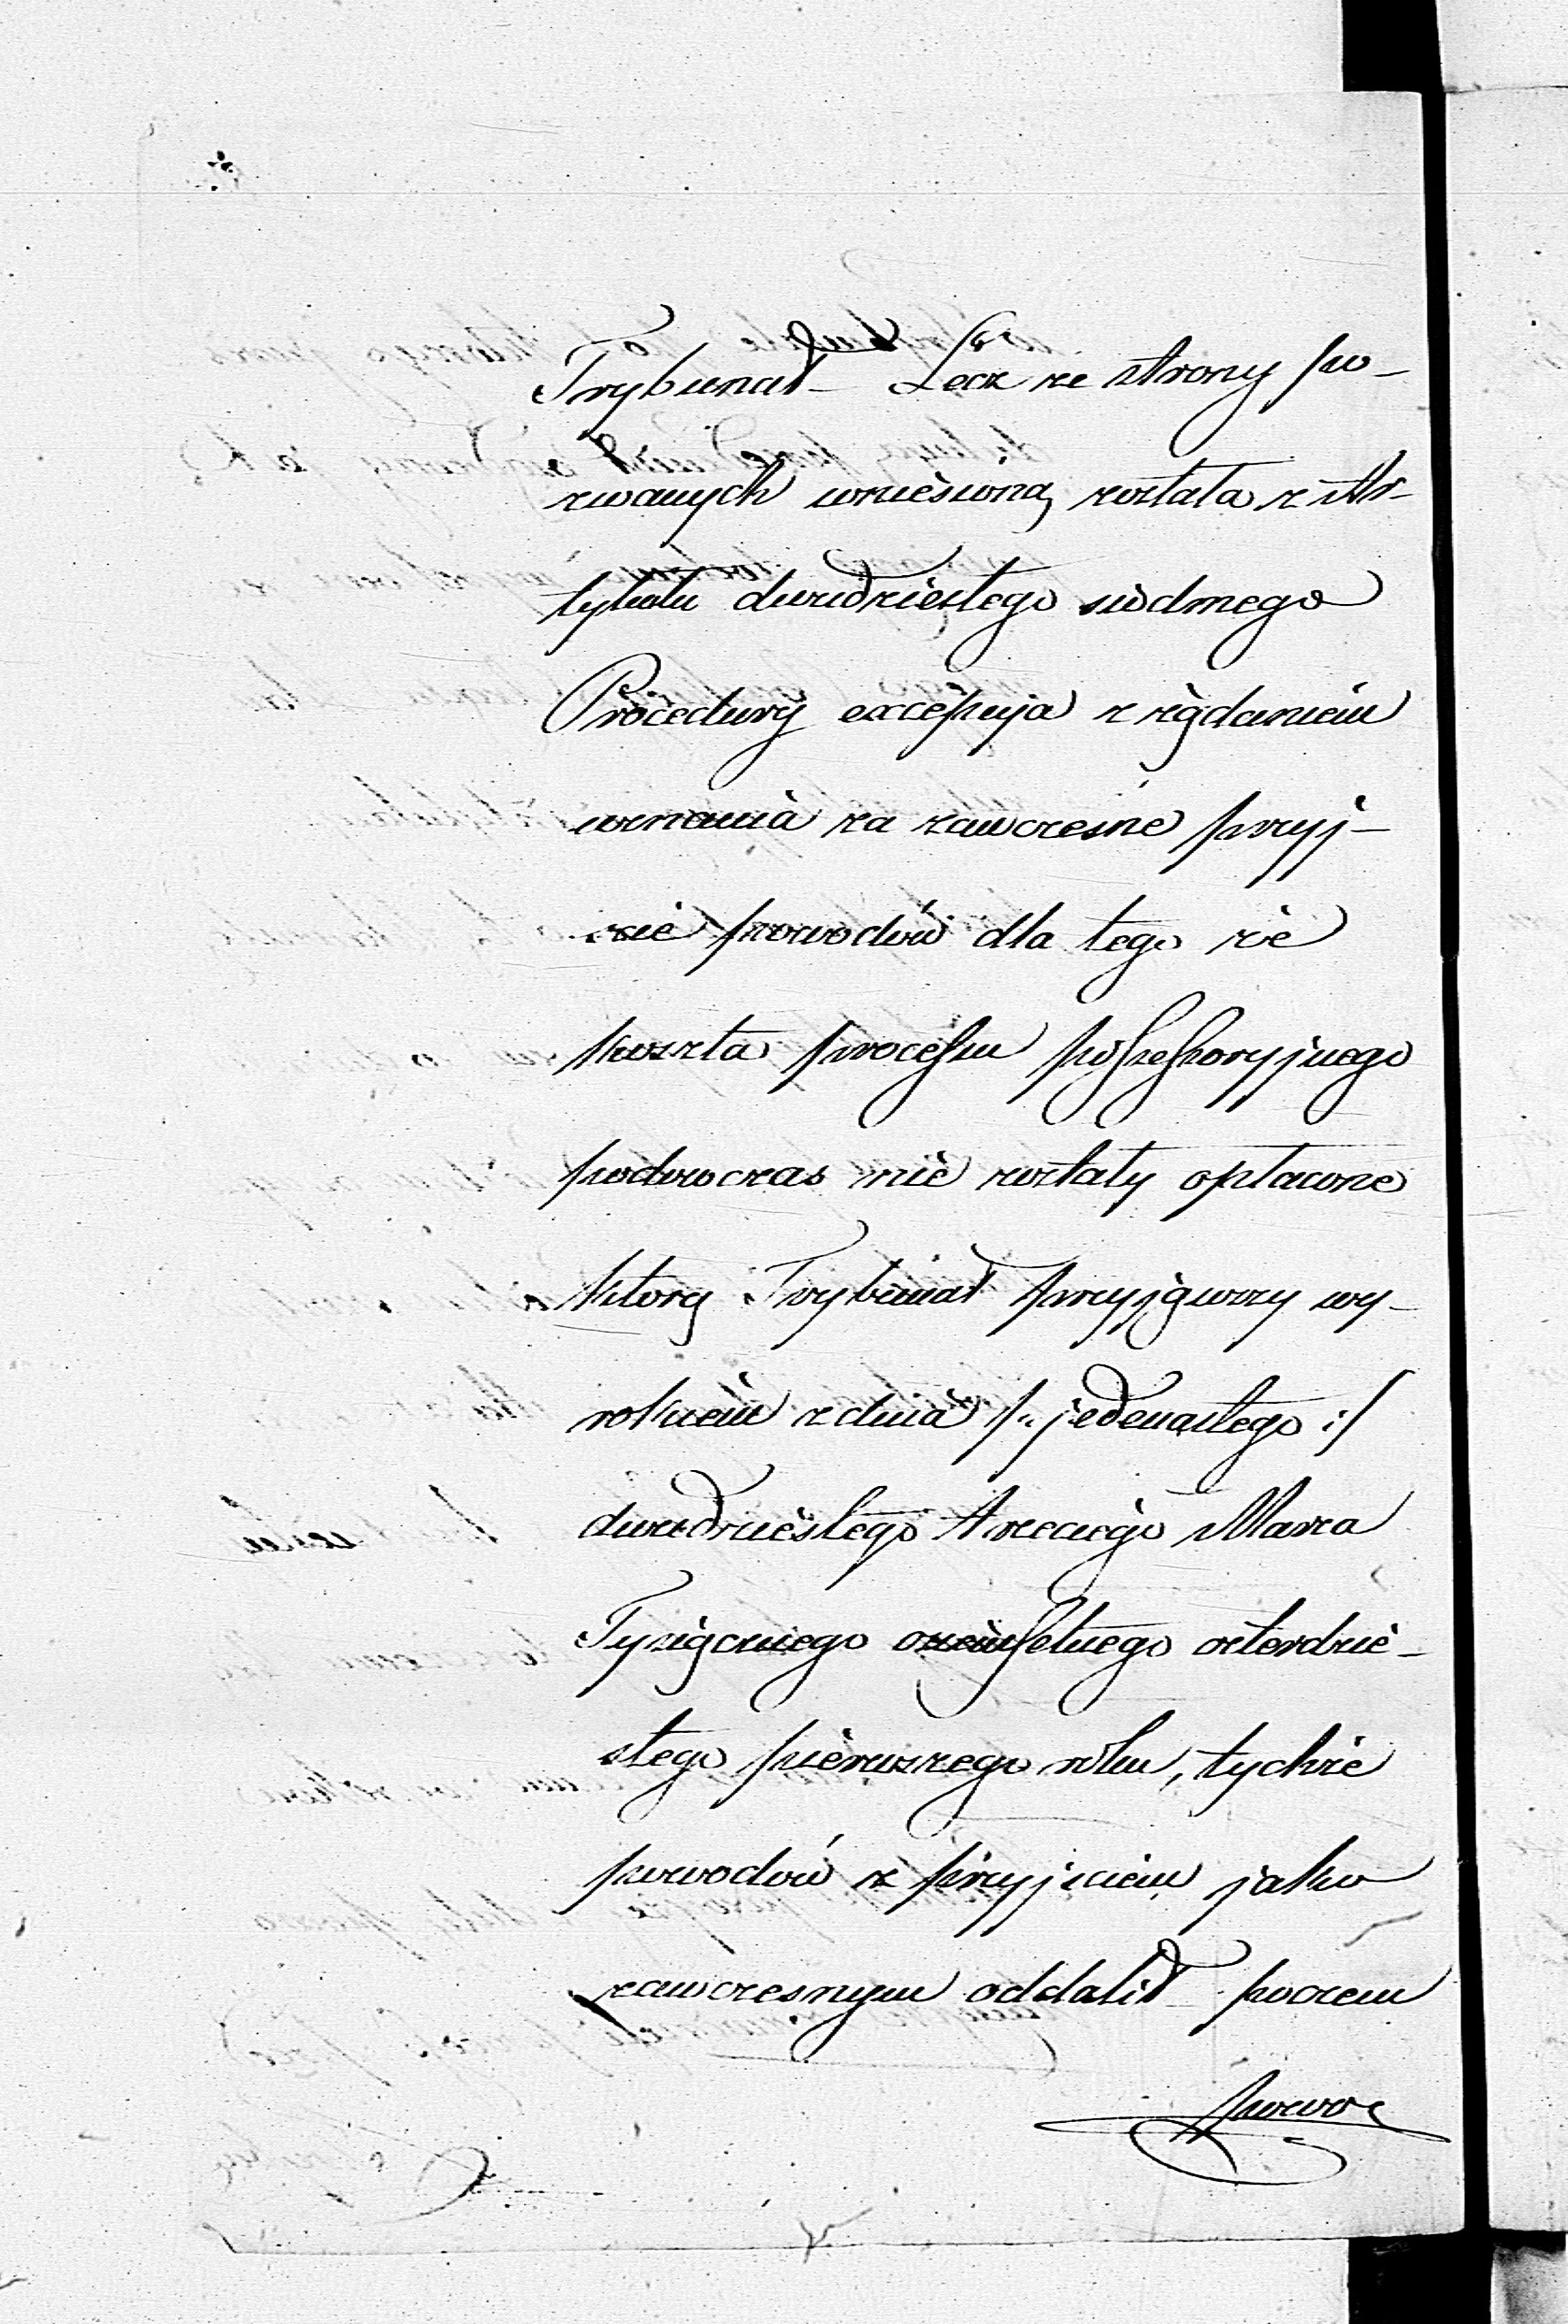 Trybunał – Lecz ze strony po-
zwanych wniesioną została z Ar-
tykułu dwudziestego siódmego
Procedury excepcya z rządaniem
uznania za zawczesne przyj-
ście powodów dla tego że
koszta processu possessoryjnego
podowczas nie zostały opłacone
który Trybunał przyjąwszy wy-
rokiem z dnia /: jedenastego :/
dwudziestego trzeciego Marca
Tysiącznego ośmsetnego czterdzie-
stego pierwszego roku, tychże
powodów z przyjściem jako
zawczesnym oddalił – poczem